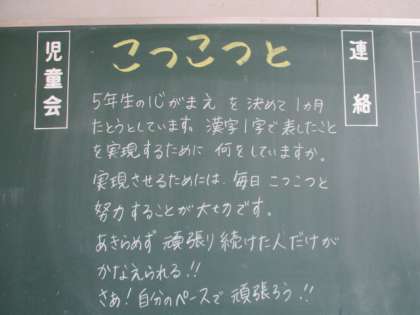 児童会
こつこつと
連絡
5年生の心がまえ を 決めて 1カ月
たとうとしています。漢字1字で表したこと
を実現するために 何をしていますか。
実現させるためには、毎日 こつこつと
努力することが大切です。
あきらめず 頑張り続けた人だけが
かなえられる!!
さぁ!自分のペースで 頑張ろう!!